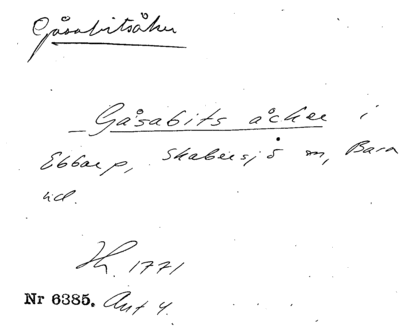 Gåsabitsåker
Gåsabits åcker i
Ebbarp, Skabersjö sn, Bara
hd.
Hh. 1771
Nr 6385. Ant 4.